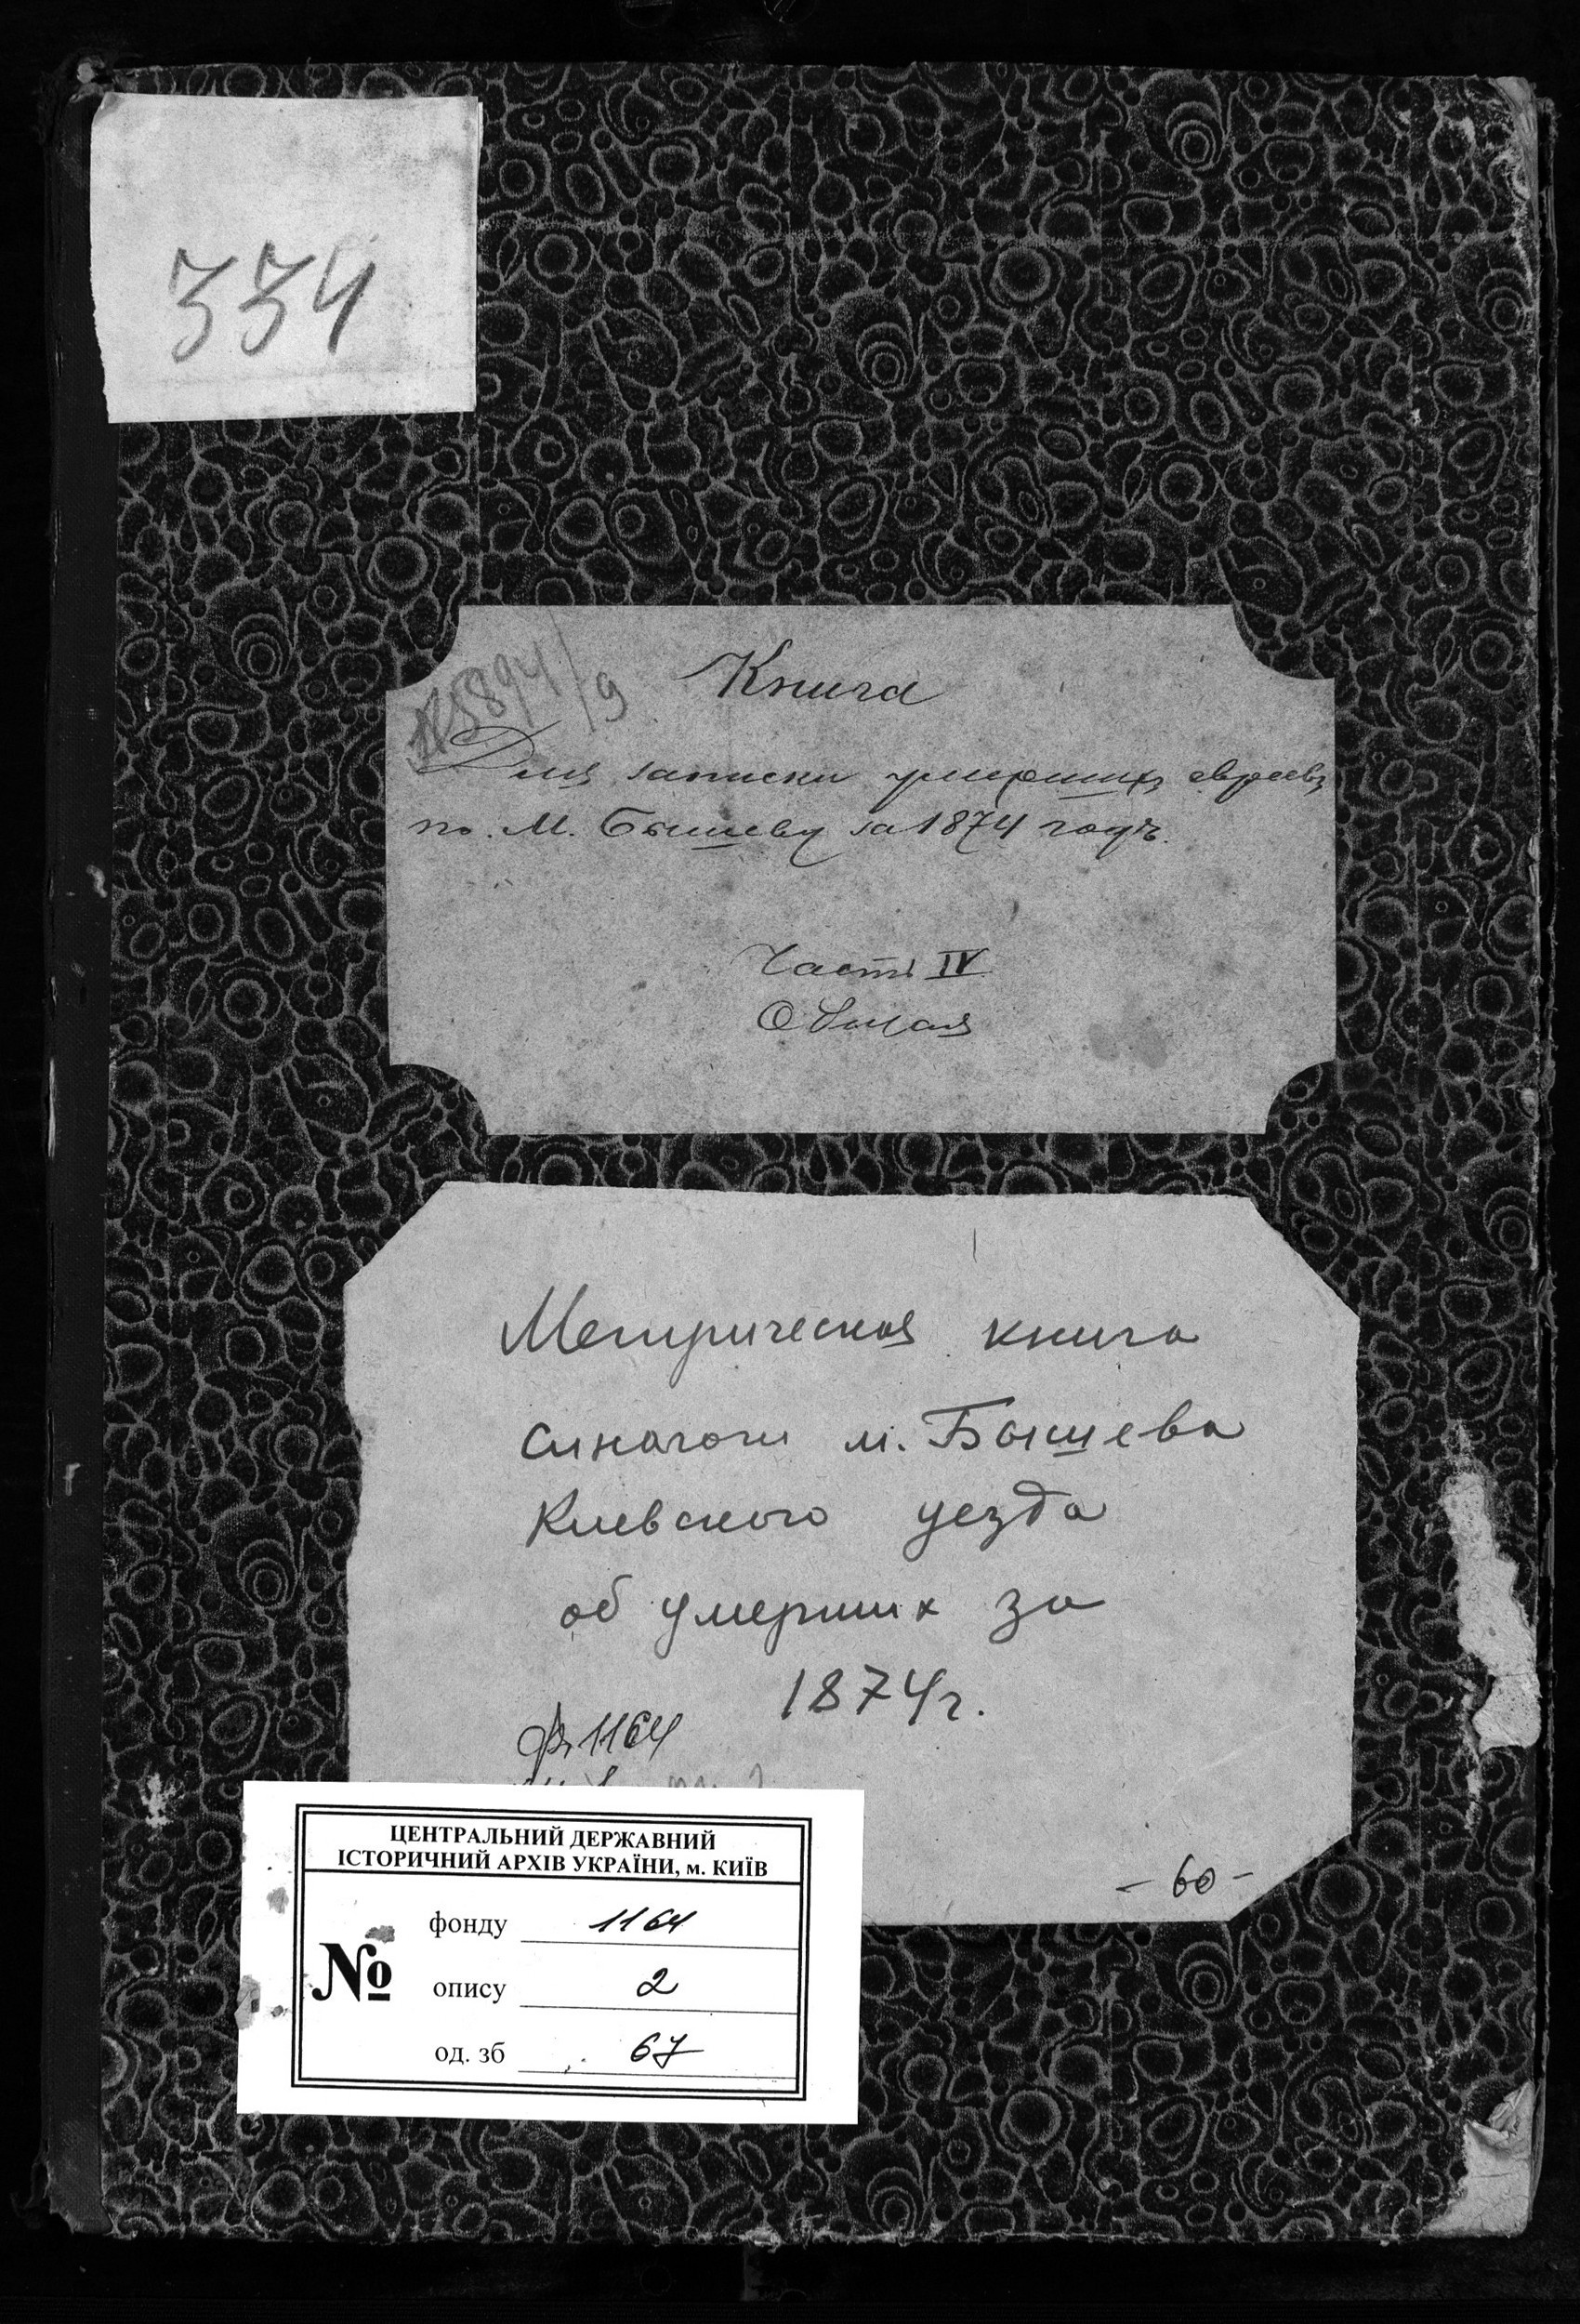 334
№ 5894/9
Книга
Для записки умершихъ евреевъ
по М. Бышеву за 1874 годъ.
Часть IV
О
Метрическая книга
синагоги м. Бышева
Киевского уезда
об умерших за
1874 г.
ф. 1164
- 60 -
ЦЕНТРАЛЬНИЙ ДЕРЖАВНИЙ
ІСТОРИЧНИЙ АРХІВ УКРАЇНИ, м. КИЇВ
№
фонду 1164
опису 2
од. зб 67